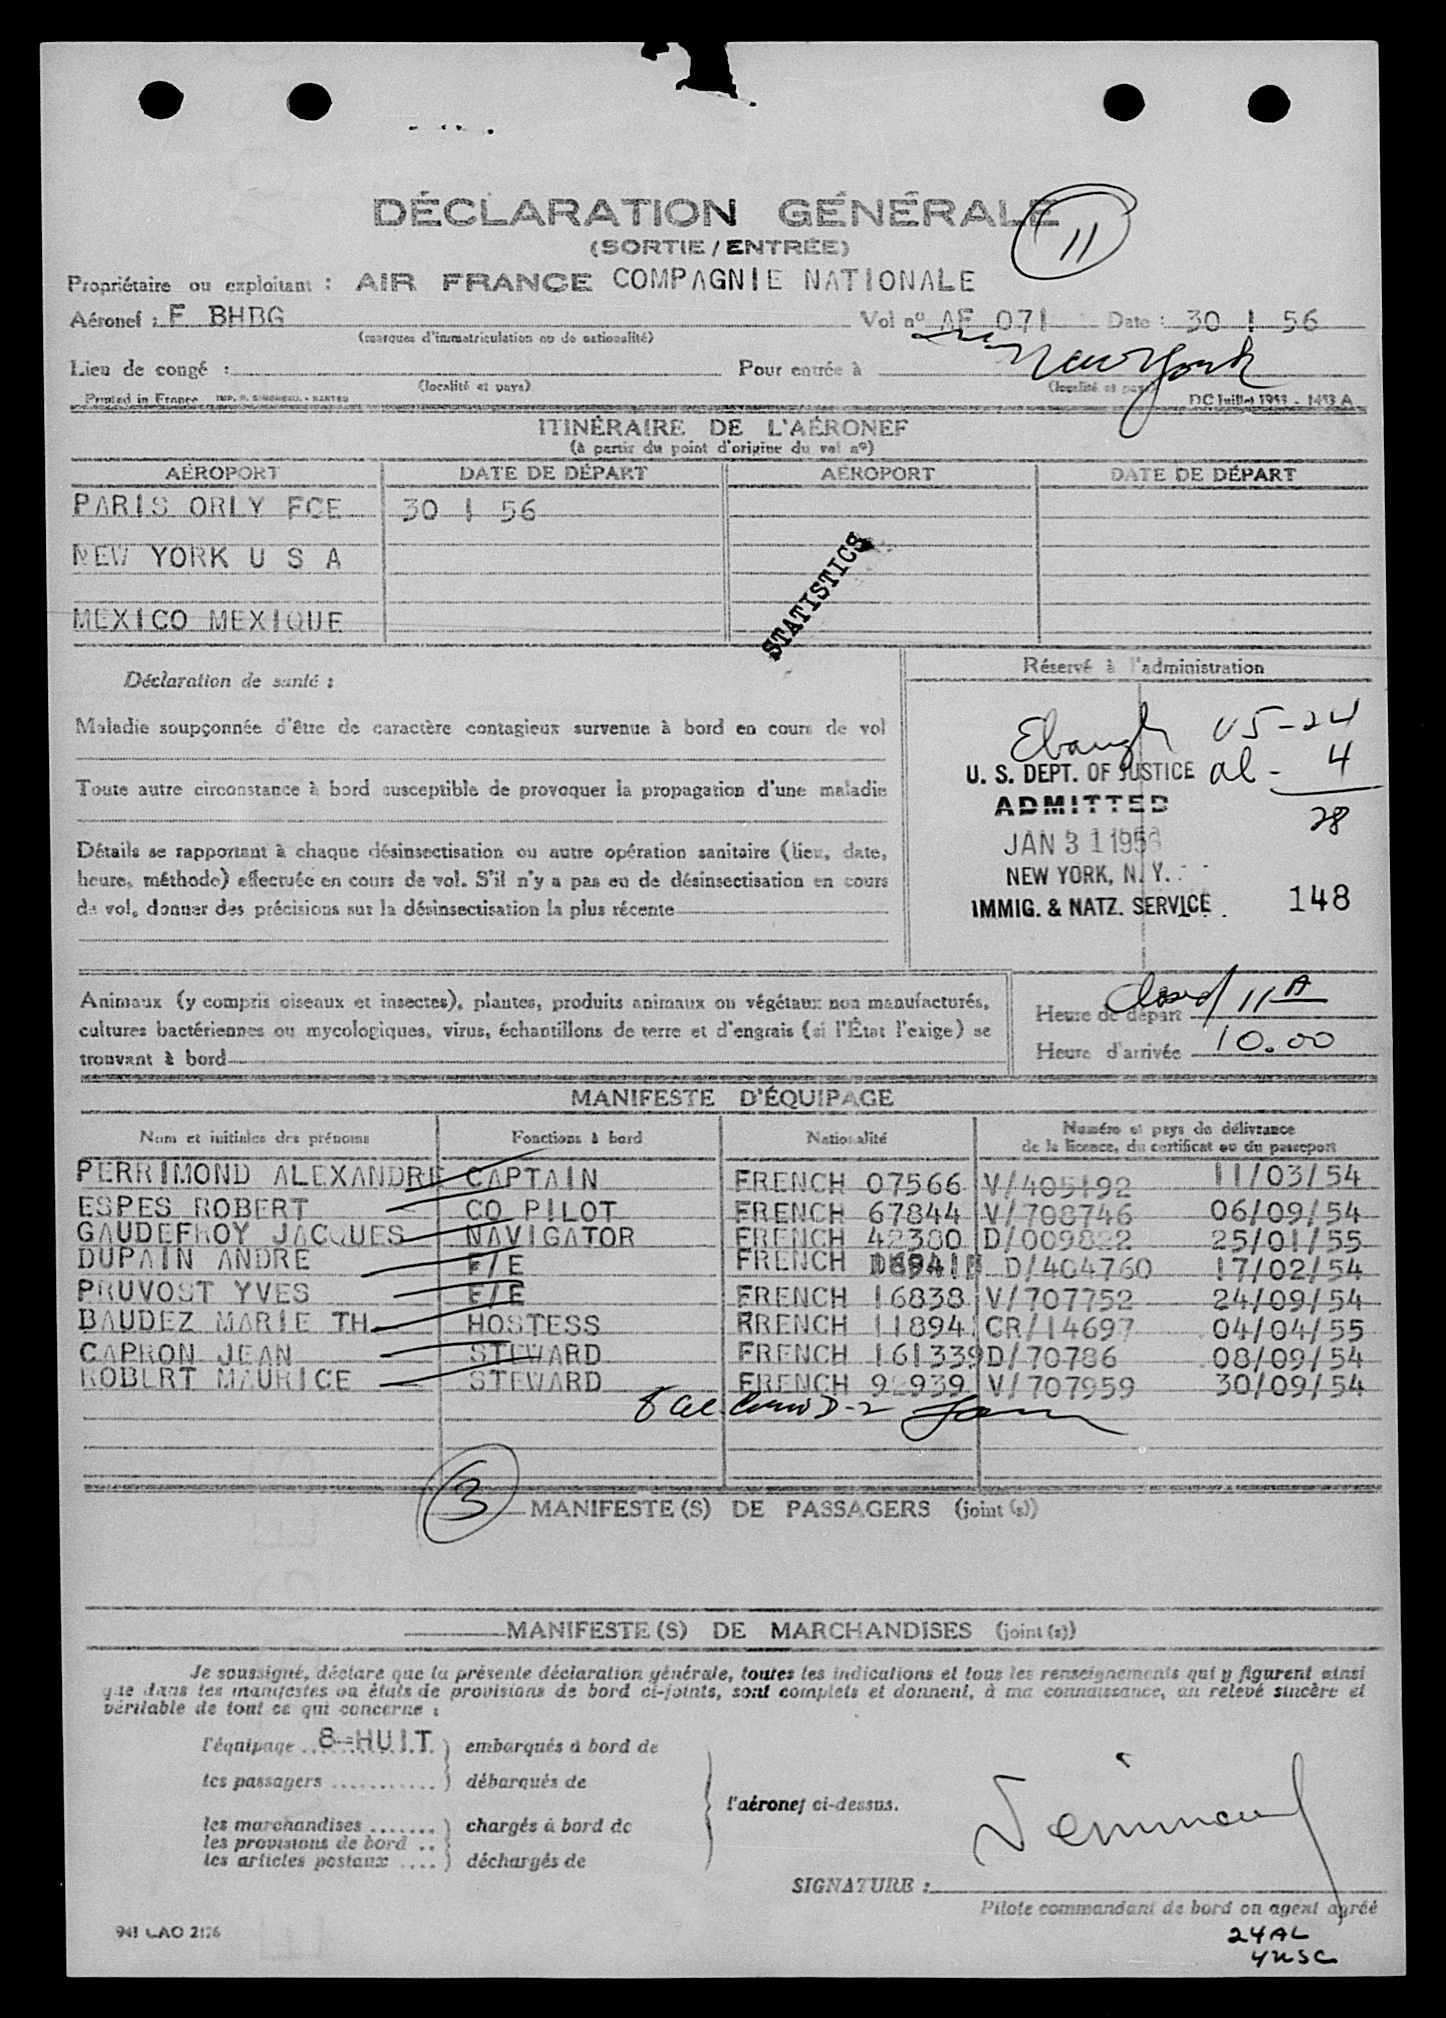 DÉCLARATION GÉNÉRALE
11
(SORTIE / ENTRÉE)
Propriétaire ou exploitant : AIR FRANCE COMPAGNIE NATIONALE
Aéronef : F BHBG Vol nº AF 071 Date : 30 1 56
(marques d'immatriculation ou de nationalité)
Lieu de congé : Pour entrée à New York
(localité et pays) (localité et pays)
Printed in France IMP. R. SIMONEAU. - NANTES DC Juillet 1953 - 1453 A
ITINÉRAIRE DE L'AÉRONEF
(à partir du point d'origine du vol nº)
AÉROPORT DATE DE DÉPART AÉROPORT DATE DE DÉPART
PARIS ORLY FCE 30 1 56
NEW YORK U S A
MEXICO MEXIQUE
STATISTICS
Déclaration de santé :
Réservé à l'administration
Maladie soupçonnée d'être de caractère contagieux survenue à bord en cours de vol
Toute autre circonstance à bord susceptible de provoquer la propagation d'une maladie
Détails se rapportant à chaque désinsectisation ou autre opération sanitaire (lieu, date,
heure, méthode) effectuée en cours de vol. S'il n'y a pas eu de désinsectisation en cours
de vol, donner des précisions sur la désinsectisation la plus récente
Ebaugh US-24
U. S. DEPT. OF JUSTICE al - 4
ADMITTED
28
JAN 31 1956
NEW YORK, N. Y.
IMMIG. & NATZ. SERVICE 148
Animaux (y compris oiseaux et insectes), plantes, produits animaux ou végétaux non manufacturés,
cultures bactériennes ou mycologiques, virus, échantillons de terre et d'engrais (si l'État l'exige) se
trouvant à bord
Heure de départ closed 11 A
Heure d'arrivée 10.00
MANIFESTE D'ÉQUIPAGE
Nom et initiales des prénoms Fonctions à bord Nationalité Numéro et pays de délivrance
de la licence, du certificat ou du passeport
PERRIMOND ALEXANDRE CAPTAIN FRENCH 07566 V/405192 11/03/54
ESPES ROBERT CO PILOT FRENCH 67844 V/708746 06/09/54
GAUDEFROY JACQUES NAVIGATOR FRENCH 42380 D/009822 25/01/55
DUPAIN ANDRE F/E FRENCH D/404760 17/02/54
PRUVOST YVES F/E FRENCH 16838 V/707752 24/09/54
BAUDEZ MARIE TH HOSTESS RRENCH 11894 CR/14697 04/04/55
CAPRON JEAN STEWARD FRENCH 161339 D/70786 08/09/54
ROBERT MAURICE STEWARD FRENCH 92939 V/707959 30/09/54
8 al. D-2
3 MANIFESTE (S) DE PASSAGERS (joint (s))
MANIFESTE (S) DE MARCHANDISES (joint (s))
Je soussigné, déclare que la présente déclaration générale, toutes les indications et tous les renseignements qui y figurent ainsi
que dans les manifestes ou états de provisions de bord ci-joints, sont complets et donnent, à ma connaissance, un relevé sincère et
véritable de tout ce qui concerne :
l'équipage 8=HUIT ) embarqués à bord de
les passagers ............ ) débarqués de
l'aéronef ci-dessus.
les marchandises ....... ) chargés à bord de
les provisions de bord ..
les articles postaux .... ) déchargés de
SIGNATURE :
Pilote commandant de bord ou agent agréé
941 CAO 2176
24 AL
4 USC